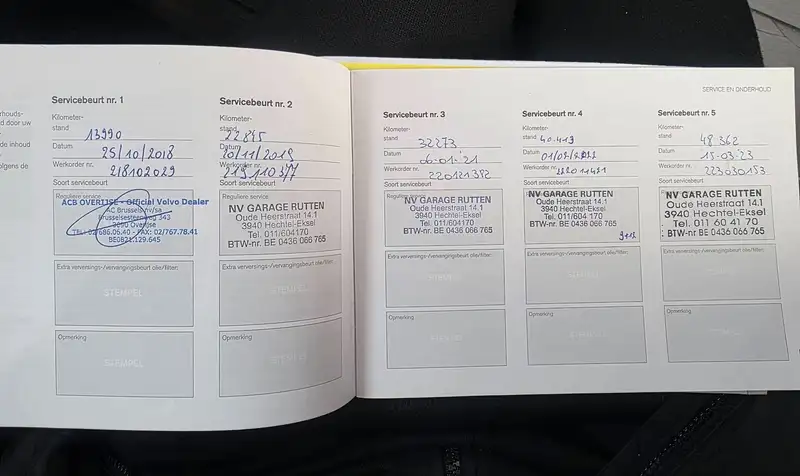 SERVICE EN ONDERHOUD
Servicebeurt nr. 1
Kilometer-
stand 13990
Datum 25/10/2018
Werkorder nr. 218102029
Soort servicebeurt
Reguliere service
ACB OVERIJSE - Official Volvo Dealer
AC Brussel nv/sa
Brusselsesteenweg 343
3090 Overijse
TEL: 02/686.06.40 - FAX: 02/767.78.41
BE0821.129.645
Extra verversings-/vervangingsbeurt olie/filter:
STEMPEL
Opmerking
STEMPEL
Servicebeurt nr. 2
Kilometer-
stand 22875
Datum 20/11/2019
Werkorder nr.
Soort servicebeurt
Reguliere service
NV GARAGE RUTTEN
Oude Heerstraat 14.1
3940 Hechtel-Eksel
Tel. 011/604170
BTW-nr. BE 0436 066 765
Extra verversings-/vervangingsbeurt olie/filter:
STEMPEL
Opmerking
STEMPEL
Servicebeurt nr. 3
Kilometer-
stand 32273
Datum 06-01-21
Werkorder nr.
Soort servicebeurt
Reguliere service
NV GARAGE RUTTEN
Oude Heerstraat 14.1
3940 Hechtel-Eksel
Tel. 011/604170
BTW-nr. BE 0436 066 765
Extra verversings-/vervangingsbeurt olie/filter:
STEMPEL
Opmerking
STEMPEL
Servicebeurt nr. 4
Kilometer-
stand 40.419
Datum
Werkorder nr.
Soort servicebeurt
NV GARAGE RUTTEN
Oude Heerstraat 14.1
3940 Hechtel-Eksel
Tel. 011/604 170
BTW-nr. BE 0436 066 765
Extra verversings-/vervangingsbeurt olie/filter:
STEMPEL
Opmerking
STEMPEL
Servicebeurt nr. 5
Kilometer-
stand 48.362
Datum 15-03-23
Werkorder nr. 223030153
Soort servicebeurt
NV GARAGE RUTTEN
Oude Heerstraat 14.1
3940 Hechtel-Eksel
Tel. 011 60 41 70
BTW-nr. BE 0436 066 765
Extra verversings-/vervangingsbeurt olie/filter:
Opmerking